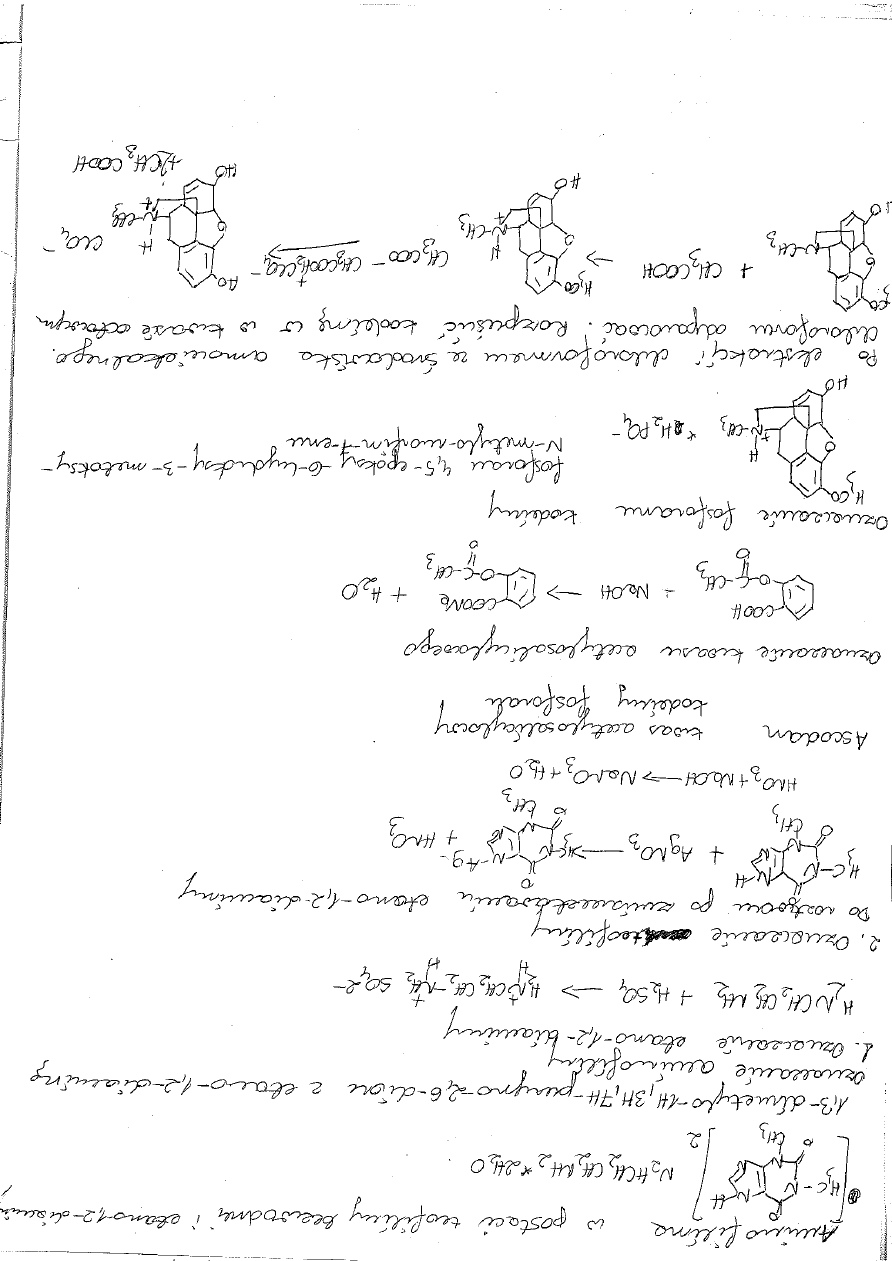 Aminofilina w postaci teofiliny bezwodnej i etano-1,2-diaminy
H₃C N N N N H O O CH₃ 2 N₂HCH₂CH₂NH₂ * 2H₂O
1,3-dimetylo-1H,3H,7H-puryno-2,6-dion z etano-1,2-diaminą
Oznaczanie aminofiliny
1. Oznaczanie etano-1,2-diaminy
H₂NCH₂CH₂NH₂ + H₂SO₄ → H₂N⁺CH₂CH₂N⁺H₂ SO₄²⁻
H H
2. Oznaczanie teofiliny
Do roztworu po zmiareczkowaniu etano-1,2-diaminy
H₃C N N N N H O O CH₃ + AgNO₃ → H₃C N N N N-Ag O O CH₃ + HNO₃
HNO₃ + NaOH → NaNO₃ + H₂O
Ascodan kwas acetylosalicylowy
kodeiny fosforan
Oznaczanie kwasu acetylosalicylowego
COOH O-C-CH₃ O + NaOH → COONa O-C-CH₃ O + H₂O
Oznaczanie fosforanu kodeiny
H₃CO O HO H N⁺-CH₃ * H₂PO₄⁻ fosforan 4,5-epoksy-6-hydroksy-3-metoksy-
N-metylo-morfin-7-enu
Po ekstrakcji chloroformem ze środowiska amoniakalnego.
Chloroform odparować. Rozpuścić kodeinę w kwasie octowym
H₃CO O N-CH₃ + CH₃COOH → H₃CO O HO H N⁺-CH₃ CH₃COO⁻ CH₃COOH₂⁺ClO₄⁻ → HO O HO H N⁺-CH₃ ClO₄⁻
+2CH₃COOH